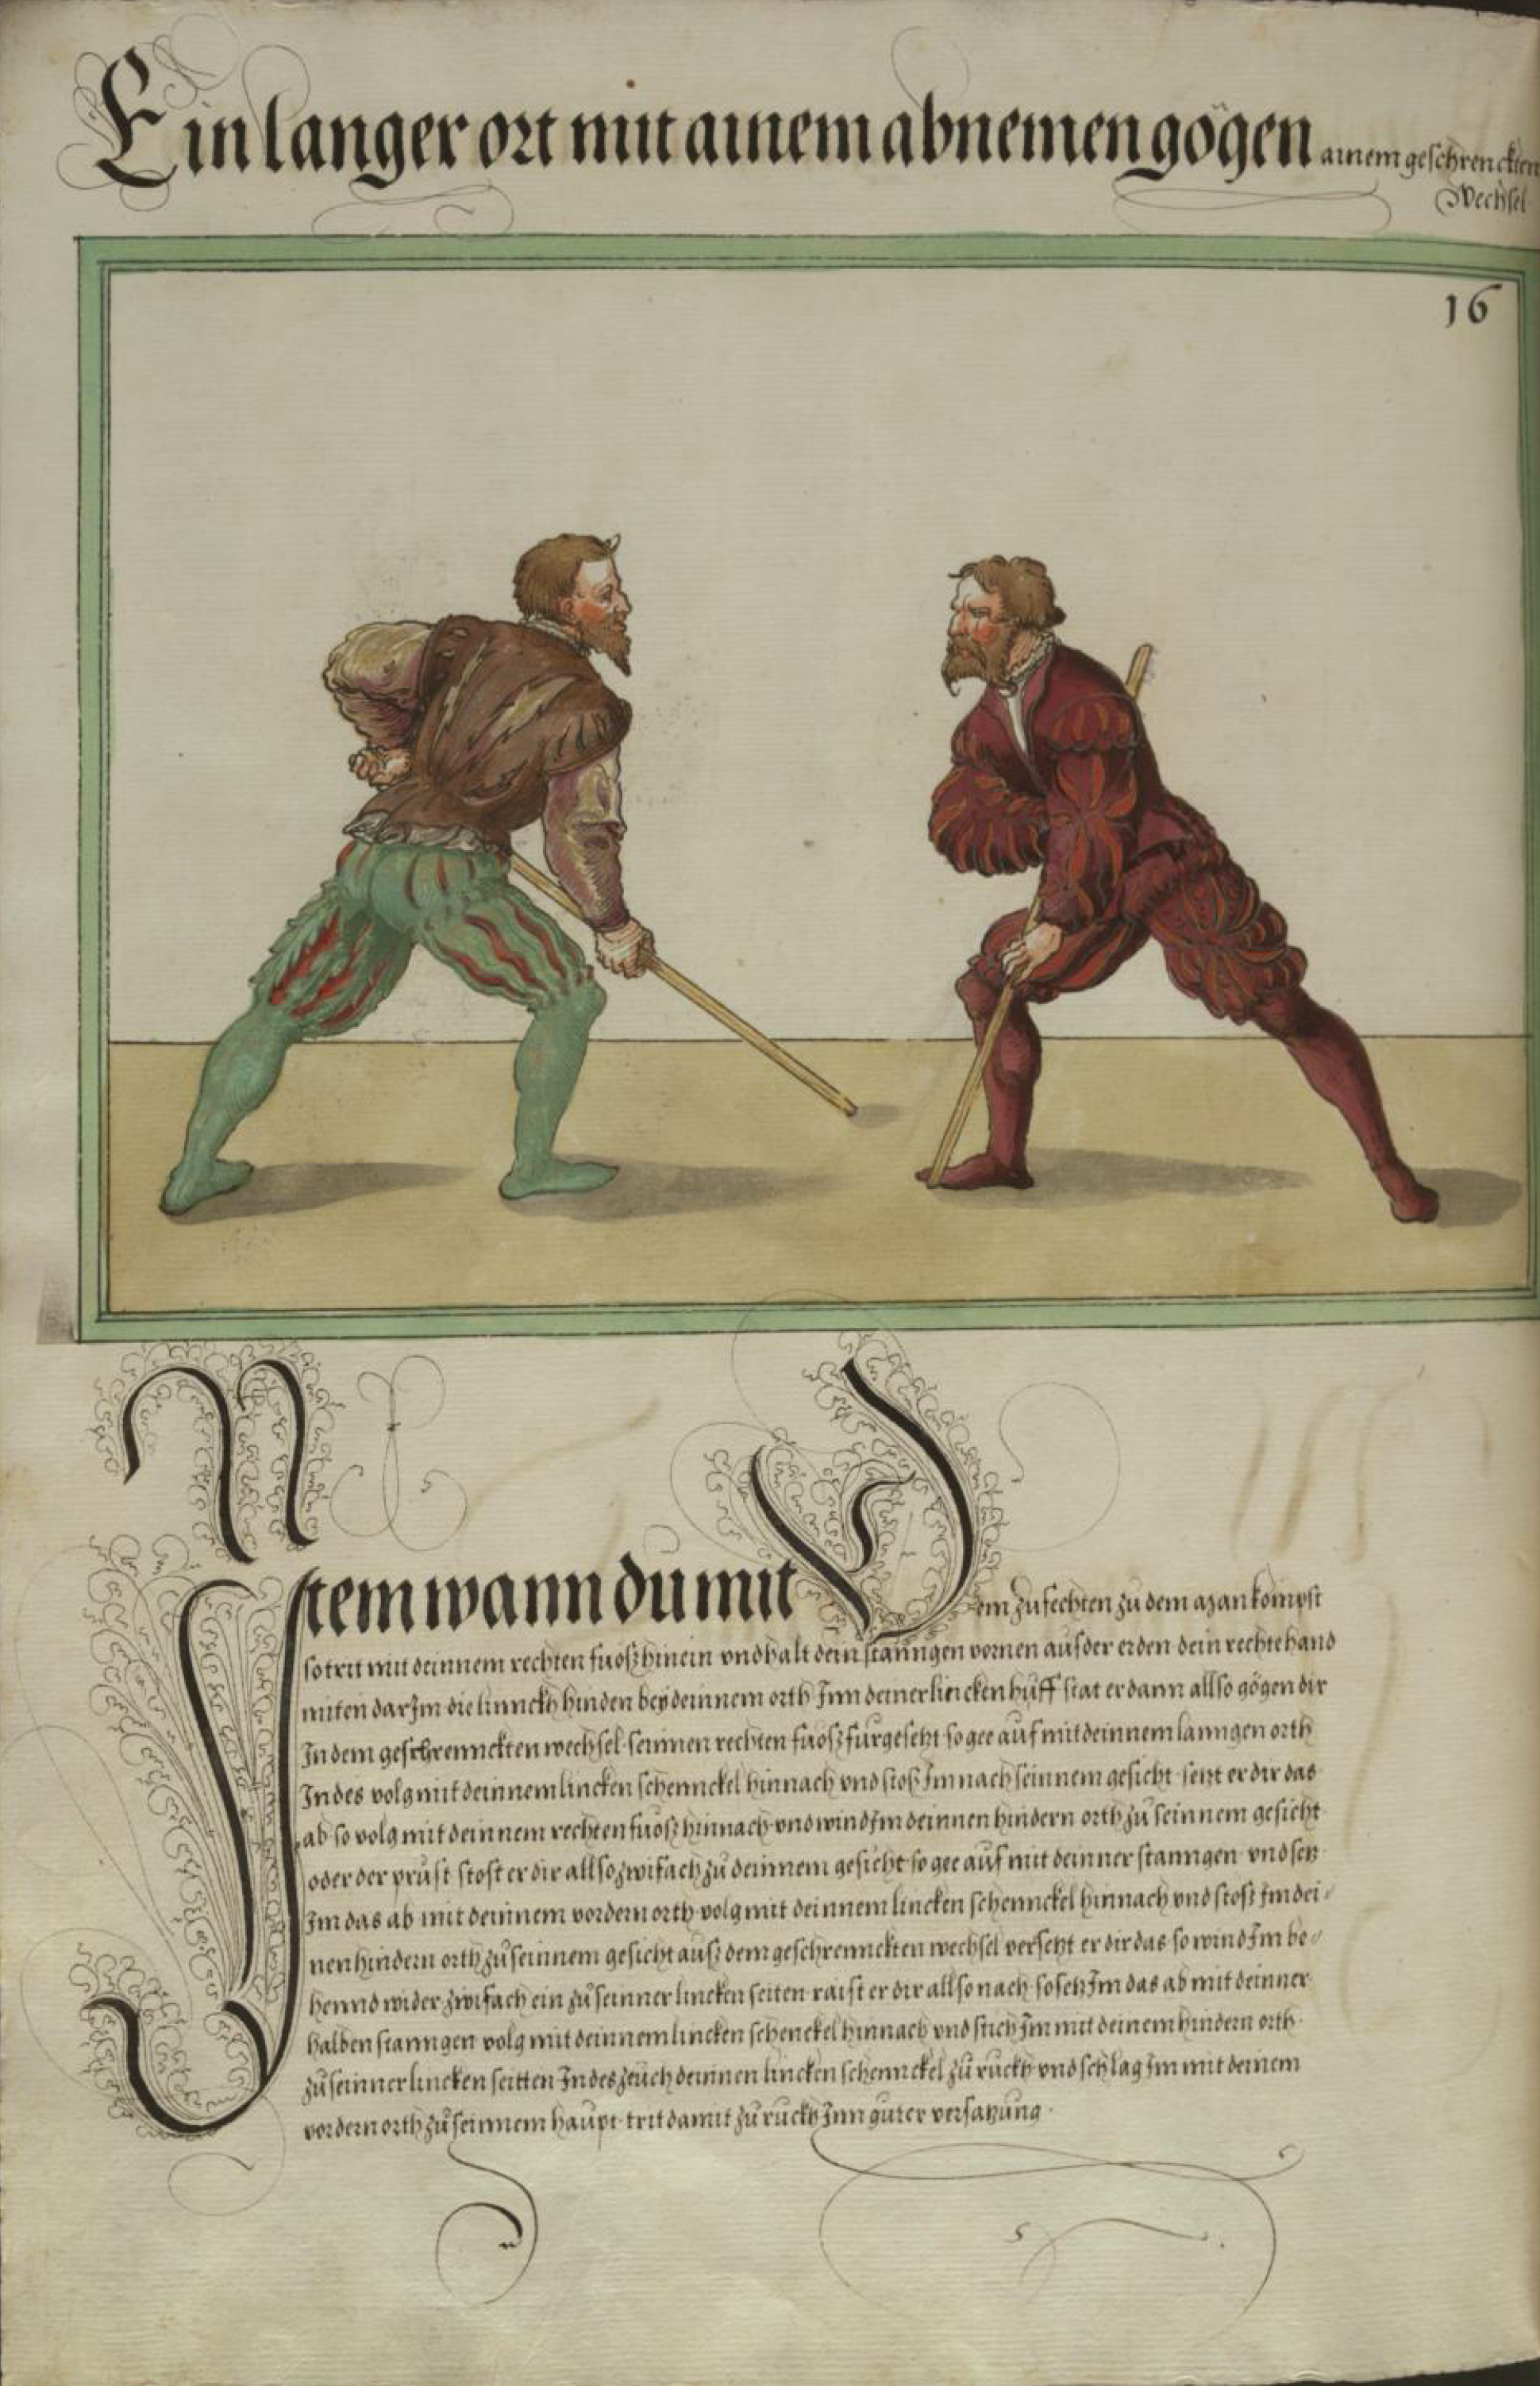 Ein langer ort mit ainem abnemen gögen ainem geschrenckten
Wechsel
16
Item wann du mit dem zufechten zu dem man kompst
so trit mit deinnem rechten fuosz hinein vnd halt dein stanngen vornen auf der erden dein rechte hand
miten dar Im die linnckh hinden bey deinnem orth Inn deiner lincken huff stat er dann allso gögen dir
In dem geschrennckten wechsel seinnen rechten fuosz fürgesetzt so gee auf mit deinnem lanngen orth
Indes volg mit deinnem lincken schennckel hinnach vnd stos Im nach seinnem gesicht setzt er dir das
ab so volg mit deinnem rechten fuosz hinnach vnd wind Im deinnen hindern orth zů seinnem gesicht
oder der prust stost er dir allso zwifach zů deinnem gesicht so gee auf mit deinner stanngen vnd setz
Im das ab mit deinnem vordern orth volg mit deinnem lincken schennckel hinnach vnd stosz Im dei/
nen hindern orth zů seinnem gesicht ausz dem geschrennckten wechsel versetzt er dir das so wind Im be//
hennd wider zwifach ein zů seinner lincken seiten raist er dir allso nach so setz Im das ab mit deinner
halben stanngen volg mit deinnem lincken schenckel hinnach vnd stich Im mit deinem hindern orth
zů seinner lincken seitten Indes zeuch deinnen lincken schennckel zů ruckh vnd schlag Im mit deinem
vordern orth zů seinnem haupt trit damit zů ruckh Inn guter versatzung